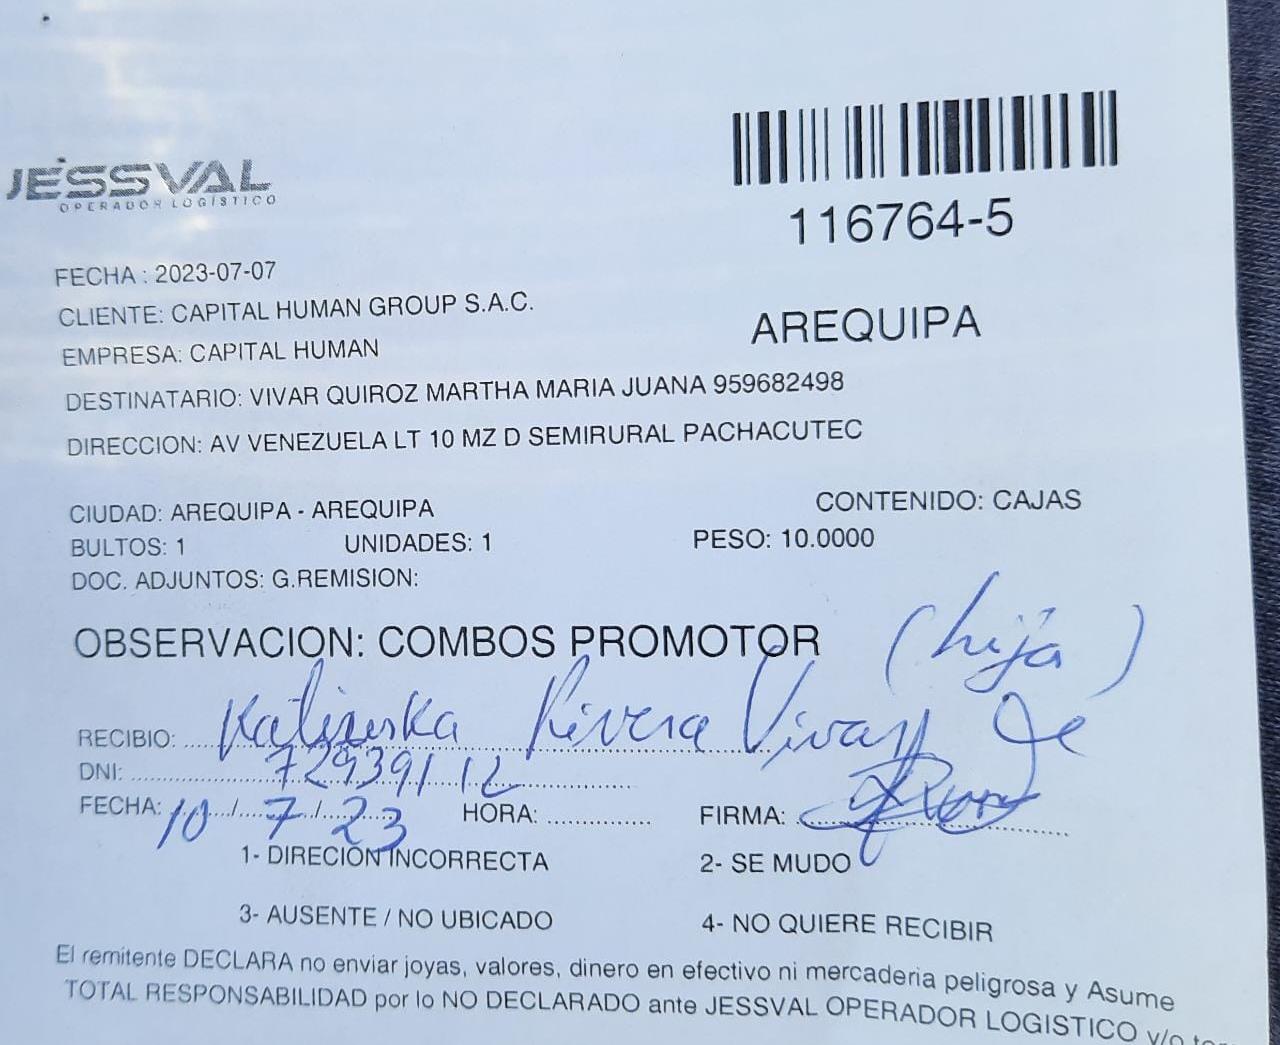 JESSVAL
OPERADOR LOGÍSTICO
116764-5
FECHA : 2023-07-07
CLIENTE: CAPITAL HUMAN GROUP S.A.C.
AREQUIPA
EMPRESA: CAPITAL HUMAN
DESTINATARIO: VIVAR QUIROZ MARTHA MARIA JUANA 959682498
DIRECCION: AV VENEZUELA LT 10 MZ D SEMIRURAL PACHACUTEC
CIUDAD: AREQUIPA - AREQUIPA CONTENIDO: CAJAS
BULTOS: 1 UNIDADES: 1 PESO: 10.0000
DOC. ADJUNTOS: G.REMISION:
OBSERVACION: COMBOS PROMOTOR (hija)
RECIBIO: Rivera
DNI: 72939112
FECHA: 10/7/23 HORA: FIRMA:
1- DIRECION INCORRECTA 2- SE MUDO
3- AUSENTE / NO UBICADO 4- NO QUIERE RECIBIR
El remitente DECLARA no enviar joyas, valores, dinero en efectivo ni mercaderia peligrosa y Asume
TOTAL RESPONSABILIDAD por lo NO DECLARADO ante JESSVAL OPERADOR LOGISTICO y/o